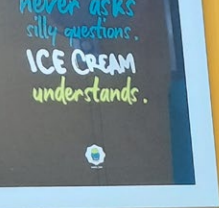 never asks
silly questions.
ICE CREAM
understands.